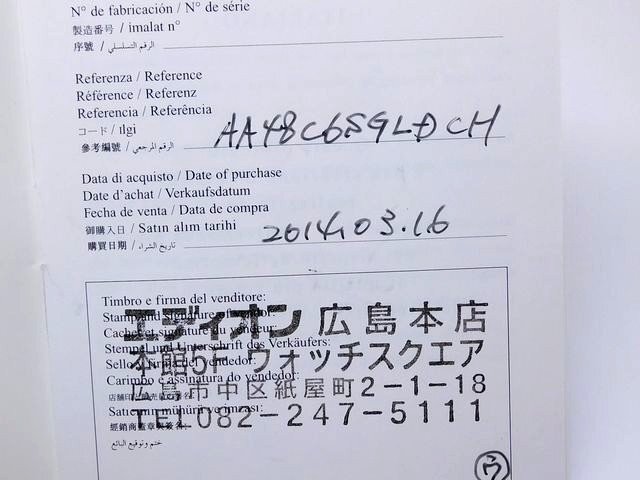 N° de fabricación / N° de série
製造番号 / imalat n°
序號 / الرقم التسلسلي
Referenza / Reference
Référence / Referenz
Referencia / Referência
コード / ılgi
參考編號 / الرقم المرجعي
AA48C6S9LDCH
Data di acquisto / Date of purchase
Date d'achat / Verkaufsdatum
Fecha de venta / Data de compra
御購入日 / Satın alım tarihi
購買日期 / تاريخ الشراء
2014.03.16
Timbro e firma del venditore:
Stamp and signature of vendor:
Cachet et signature du vendeur:
Stempel und Unterschrift des Verkäufers:
Sello y firma del vendedor:
Carimbo e assinatura do vendedor:
Satıcının mühürü ve imzası:
ختم وتوقيع البائع
エディオン 広島本店
本館5F ウォッチスクエア
広島市中区紙屋町2-1-18
TEL082-247-5111